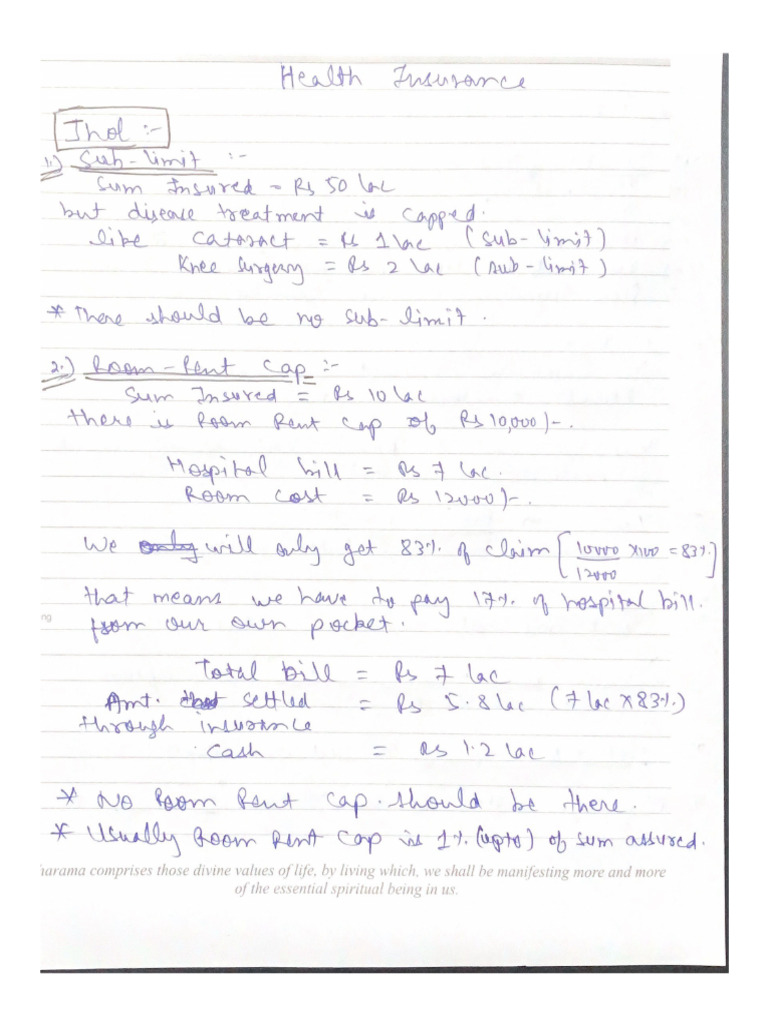 Health Insurance
Jhol :-
1.) Sub-limit :-
Sum Insured = Rs 50 lac
but disease treatment is capped.
like Cataract = Rs 1 lac (sub-limit)
Knee Surgery = Rs 2 lac (sub-limit)
* There should be no sub-limit.
2.) Room-Rent Cap :-
Sum Insured = Rs 10 lac
there is Room Rent Cap of Rs 10,000/-.
Hospital bill = Rs 7 lac.
Room cost = Rs 12000/-.
We will only get 83% of claim [10000/12000 x100 = 83%]
that means we have to pay 17% of hospital bill.
ng
from our own pocket.
Total bill = Rs 7 lac
Amt. settled = Rs 5.8 lac (7 lac x 83%)
through insurance
Cash = Rs 1.2 lac
* No Room Rent cap. should be there.
* Usually Room Rent Cap is 1% (upto) of sum assured.
harama comprises those divine values of life, by living which, we shall be manifesting more and more
of the essential spiritual being in us.